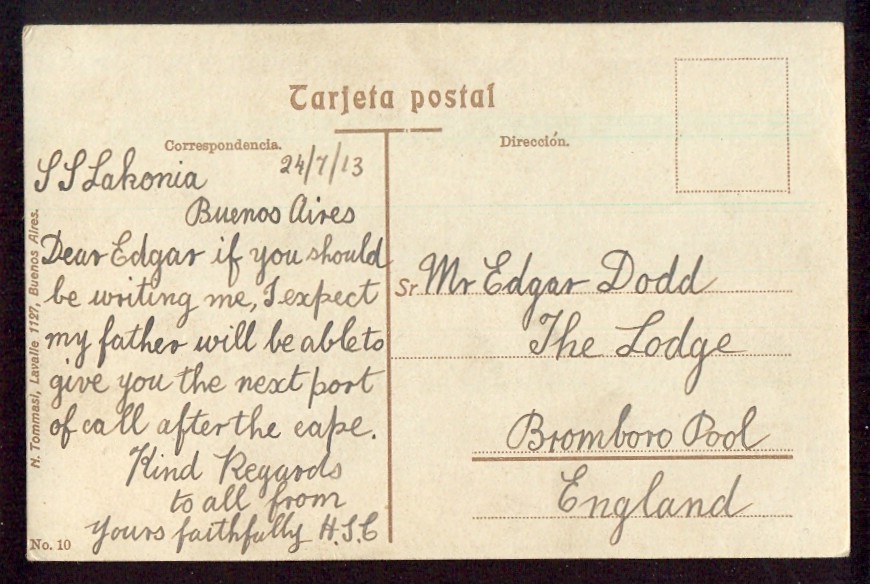 Tarjeta postal
Correspondencia.
Dirección.
24/7/13
SS Lakonia
Buenos Aires
Dear Edgar if you should
be writing me, I expect
my father will be able to
give you the next port
of call after the cape.
Kind Regards
to all from
yours faithfully H.S.C
Sr. Mr Edgar Dodd
The Lodge
Bromboro Pool
England
N. Tommasi, Lavalle 1127, Buenos Aires.
No. 10